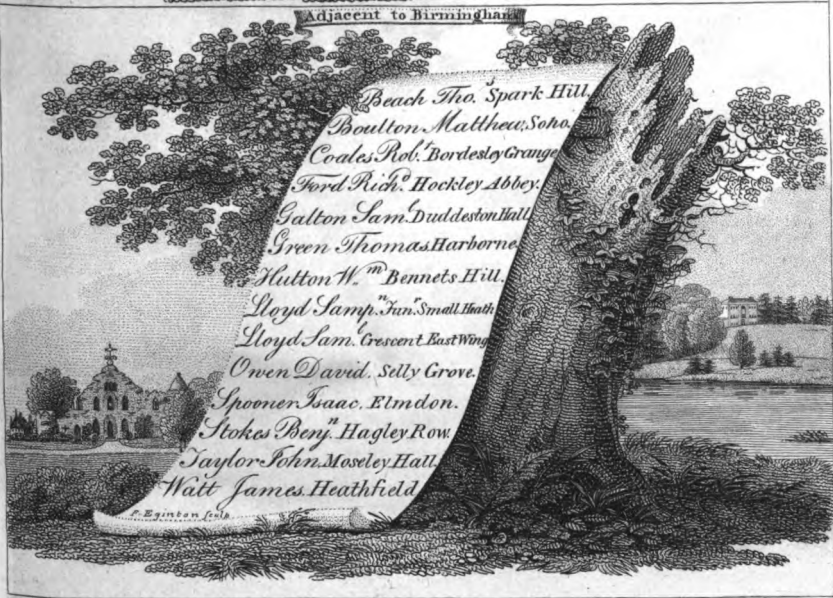 Adjacent to Birmingham
Beach Tho.s Spark Hill.
Boulton Matthew, Soho.
Coales Rob.t Bordesley Grange
Ford Rich.d Hockley Abbey.
Galton Sam.l Duddeston Hall
Green Thomas Harborne
Hutton W.m Bennets Hill.
Lloyd Samp.n Jun.r Small Heath
Lloyd Sam.l Crescent East Wing
Owen David. Selly Grove.
Spooner Isaac. Elmdon.
Stokes Benj.n Hagley Row.
Taylor John. Moseley Hall.
Watt James. Heathfield
F. Eginton sculp